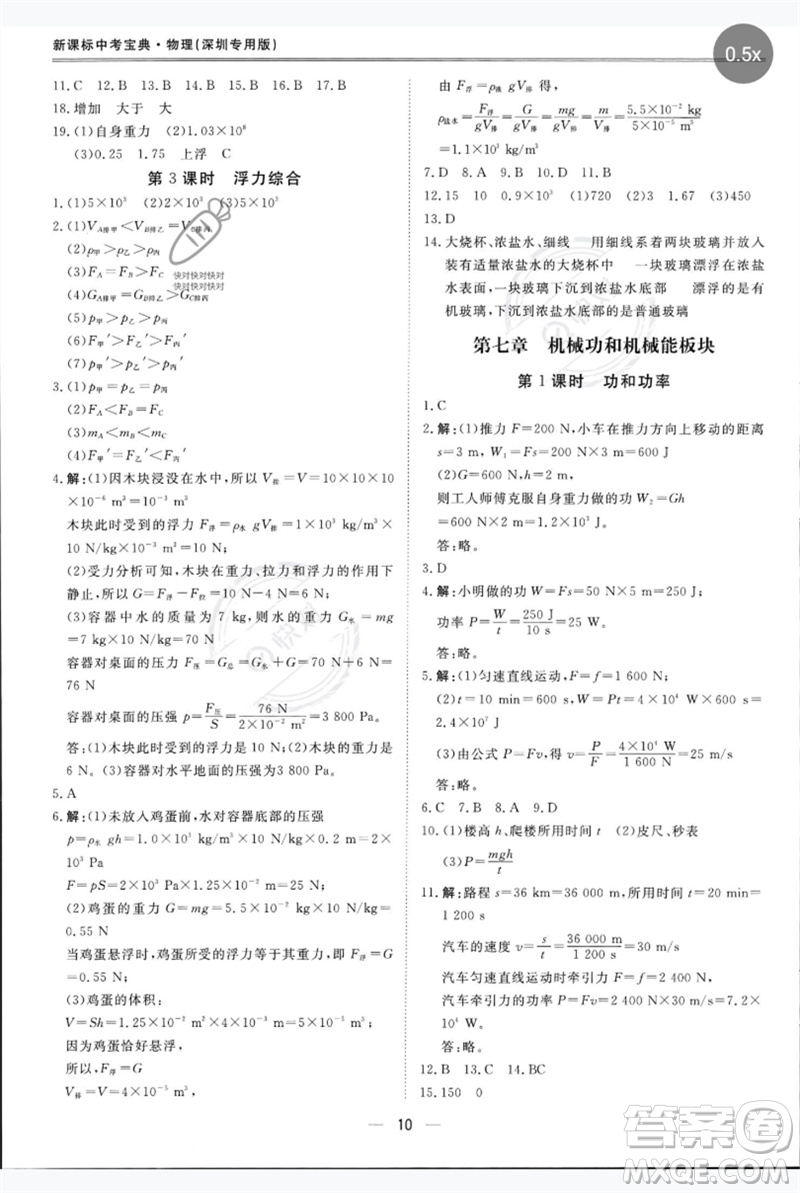 新课标中考宝典·物理(深圳专用版)
0.5x
11.C 12.B 13.B 14.B 15.B 16.B 17.B
18.增加 大于 大
19.(1)自身重力 (2)1.03×10⁸
(3)0.25 1.75 上浮 C
第3课时 浮力综合
1.(1)5×10³ (2)2×10³ (3)5×10³
2.(1)V_A排甲<V_B排乙=V_C排丙
(2)ρ甲>ρ乙>ρ丙
(3)F_A=F_B>F_C
(4)G_A排甲=G_B排乙>G_C排丙
(5)p甲>p乙>p丙
(6)p甲′>p乙′>p丙′
(7)F甲′>F乙′>F丙′
3.(1)p甲>p乙>p丙
(2)F_A<F_B=F_C
(3)m_A<m_B<m_C
4.解:(1)因木块浸没在水中,所以V排=V=10×10×10
×10⁻⁶ m³=10⁻³ m³
木块此时受到的浮力F浮=ρ水 gV排=1×10³ kg/m³×
10 N/kg×10⁻³ m³=10 N;
(2)受力分析可知,木块在重力、拉力和浮力作用下
静止,所以G=F浮-F拉=10 N-4 N=6 N;
(3)容器中水的质量为7 kg,则水的重力G水=mg
=7 kg×10 N/kg=70 N
容器对桌面的压力F压=G总=G水+G木=70 N+6 N=
76 N
容器对桌面的压强p=F压/S=76 N/(2×10⁻² m²)=3 800 Pa。
答:(1)木块的浮力是10 N;(2)木块的重力是
6 N;(3)容器对水平地面的压强为3 800 Pa。
5.A
6.解:(1)未放入鸡蛋前,水对容器底部的压强
p=ρ水 gh=1.0×10³ kg/m³×10 N/kg×0.2 m=2×
10³ Pa
F=pS=2×10³ Pa×4×10⁻² m²=80 N
(2)鸡蛋的重力G=mg=5.5×10⁻² kg×10 N/kg=
0.55 N
当鸡蛋悬浮时,鸡蛋所受的浮力等于重力,即F浮=G
=0.55 N
(3)鸡蛋的体积:
V=Sh=4×10⁻² m²×0.125×10⁻² m=5×10⁻⁵ m³
因为鸡蛋恰好完全悬浮,
所以,F浮=G
V排=V=5×10⁻⁵ m³,
由F浮=ρ液 gV排得:
ρ盐水=F浮/gV排=G/gV排=mg/gV排=m/V排=5.5×10⁻² kg/5×10⁻⁵ m³
=1.1×10³ kg/m³
7.D 8.A 9.B 10.D 11.B
12.15 10 0.9×10³ (1)720 (2)3 1.67 (3)450
13.D
14.大烧杯、浓盐水、细线 用细线系着两块玻璃放入
装有适量浓盐水的大烧杯中 一块玻璃漂浮在浓盐
水表面,一块玻璃下沉到浓盐水底部 漂浮的是有
机玻璃,下沉到浓盐水底部的是普通玻璃
第七章 机械功和机械能板块
第1课时 功和功率
1.C
2.解:(1)推力F=200 N,小车在推力方向上移动的距
离s=5 m,W₁=Fs=200 N×5 m=1 000 J
(2)G=600 N,h=2 m,
则工人师傅克服自身重力做的功W₂=Gh
=600 N×2 m=1.2×10³ J。
答:略。
3.D
4.解:小明做的功W=Fs=50 N×5 m=250 J;
功率P=W/t=250 J/10 s=25 W。
答:略。
5.解:(1)匀速直线运动,所以F=f=1 600 N;
(2)t=10 min=600 s,W=Pt=4×10⁴ W×600 s=
2.4×10⁷ J
(3)由公式P=Fv,得v=P/F=4×10⁴ W/1 600 N=25 m/s。
答:略。
6.C 7.B 8.A 9.D
10.(1)楼高h、爬楼所用时间t (2)皮尺、秒表
(3)P=mgh/t
11.解:路程s=36 km=36 000 m,所用时间t=20 min=
1 200 s
汽车的速度v=s/t=36 000 m/1 200 s=30 m/s
汽车匀速直线运动时牵引力F=f=2 400 N,
汽车牵引力的功率P=Fv=2 400 N×30 m/s=7.2×
10⁴ W。
答:略。
12.B 13.C 14.BC
15.150 0
10
快对快对快对
快对快对快对
答案圈
MXQE.COM